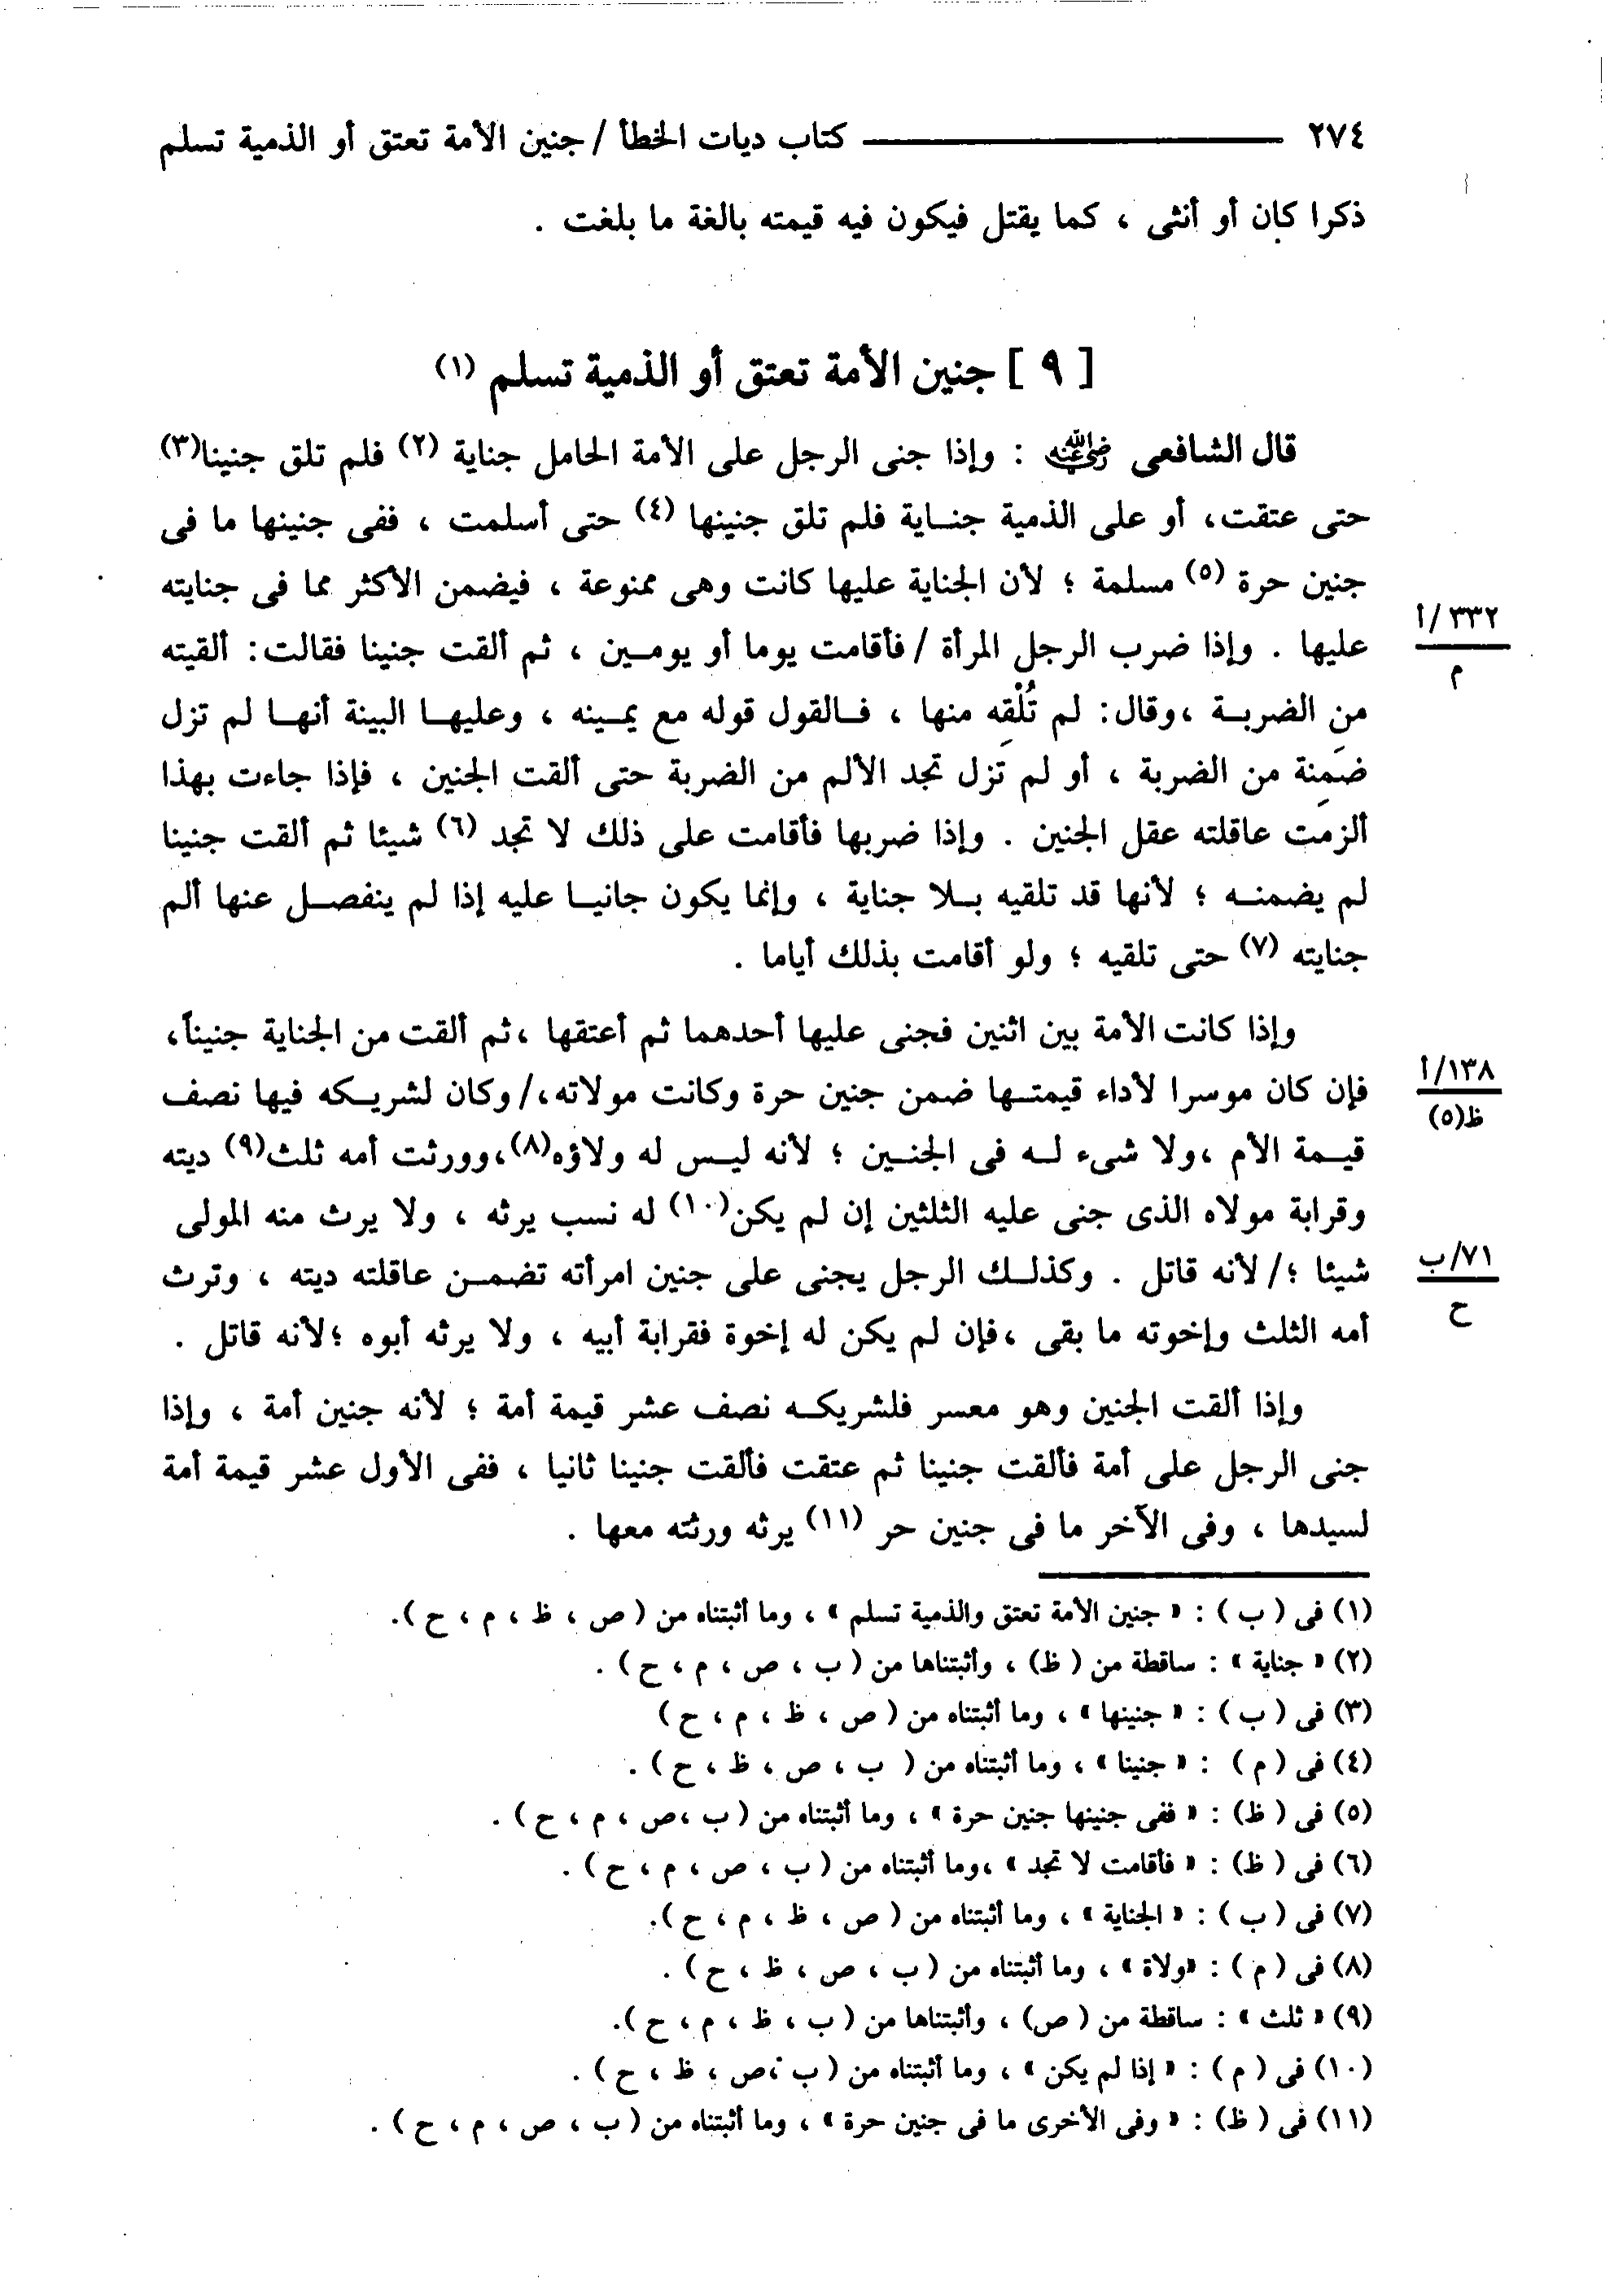 ٢٧٤ ــــــ كتاب ديات الخطأ / جنين الأمة تعتق أو الذمية تسلم
ذكرا كان أو أنثى ، كما يقتل فيكون فيه قيمته بالغة ما بلغت .
[ ٩ ] جنين الأمة تعتق أو الذمية تسلم (١)
قال الشافعى رضي الله عنه : وإذا جنى الرجل على الأمة الحامل جناية (٢) فلم تلق جنينا(٣)
حتى عتقت، أو على الذمية جنـاية فلم تلق جنينها (٤) حتى أسلمت ، ففى جنينها ما فى
جنين حرة (٥) مسلمة ؛ لأن الجناية عليها كانت وهى ممنوعة ، فيضمن الأكثر مما فى جنايته
عليها . وإذا ضرب الرجل المرأة / فأقامت يوما أو يومـين ، ثم ألقت جنينا فقالت: ألقيته
٣٣٢/أ
م
من الضربـة ،وقال: لم تُلْقِه منها ، فـالقول قوله مع يمـينه ، وعليهـا البينة أنهـا لم تزل
ضَمِنة من الضربة ، أو لم تزل تجد الألم من الضربة حتى ألقت الجنين ، فإذا جاءت بهذا
ألزِمت عاقلته عقل الجنين . وإذا ضربها فأقامت على ذلك لا تجد (٦) شيئا ثم ألقت جنينا
لم يضمنـه ؛ لأنها قد تلقيه بـلا جناية ، وإنما يكون جانيـا عليه إذا لم ينفصـل عنها ألم
جنايته (٧) حتى تلقيه ؛ ولو أقامت بذلك أياما .
وإذا كانت الأمة بين اثنين فجنى عليها أحدهما ثم أعتقها ،ثم ألقت من الجناية جنيناً،
فإن كان موسرا لأداء قيمتـها ضمن جنين حرة وكانت مولاته،/ وكان لشريـكه فيها نصف
١٣٨/أ
ظ(٥)
قيـمة الأم ،ولا شىء لـه فى الجنـين ؛ لأنه ليـس له ولاؤه(٨)،وورثت أمه ثلث(٩) ديته
وقرابة مولاه الذى جنى عليه الثلثين إن لم يكن(١٠) له نسب يرثه ، ولا يرث منه المولى
شيئا ؛/ لأنه قاتل . وكذلـك الرجل يجنى على جنين امرأته تضمـن عاقلته ديته ، وترث
٧١/ب
ح
أمه الثلث وإخوته ما بقى ،فإن لم يكن له إخوة فقرابة أبيه ، ولا يرثه أبوه ؛لأنه قاتل .
وإذا ألقت الجنين وهو معسر فلشريكـه نصف عشر قيمة أمة ؛ لأنه جنين أمة ، وإذا
جنى الرجل على أمة فألقت جنينا ثم عتقت فألقت جنينا ثانيا ، ففى الأول عشر قيمة أمة
لسيدها ، وفى الآخر ما فى جنين حر (١١) يرثه ورثته معها .
(١) فى ( ب ) : « جنين الأمة تعتق والذمية تسلم » ، وما أثبتناه من ( ص ، ظ ، م ، ح ).
(٢) « جناية » : ساقطة من ( ظ) ، وأثبتناها من ( ب ، ص ، م ، ح ) .
(٣) فى ( ب ) : « جنينها » ، وما أثبتناه من ( ص ، ظ ، م ، ح )
(٤) فى ( م ) : « جنينا » ، وما أثبتناه من ( ب ، ص ، ظ ، ح ) .
(٥) فى ( ظ) : « ففى جنينها جنين حرة » ، وما أثبتناه من ( ب ،ص ، م ، ح ) .
(٦) فى ( ظ) : « فأقامت لا تجد » ،وما أثبتناه من ( ب ، ص ، م ، ح ) .
(٧) فى ( ب ) : « الجناية » ، وما أثبتناه من ( ص ، ظ ، م ، ح ).
(٨) فى ( م ) : «ولاة » ، وما أثبتناه من ( ب ، ص ، ظ ، ح ) .
(٩) « ثلث » : ساقطة من ( ص) ، وأثبتناها من ( ب ، ظ ، م ، ح ).
(١٠) فى ( م ) : « إذا لم يكن » ، وما أثبتناه من ( ب ،ص ، ظ ، ح ) .
(١١) فى ( ظ) : « وفى الأخرى ما فى جنين حرة » ، وما أثبتناه من ( ب ، ص ، م ، ح ) .